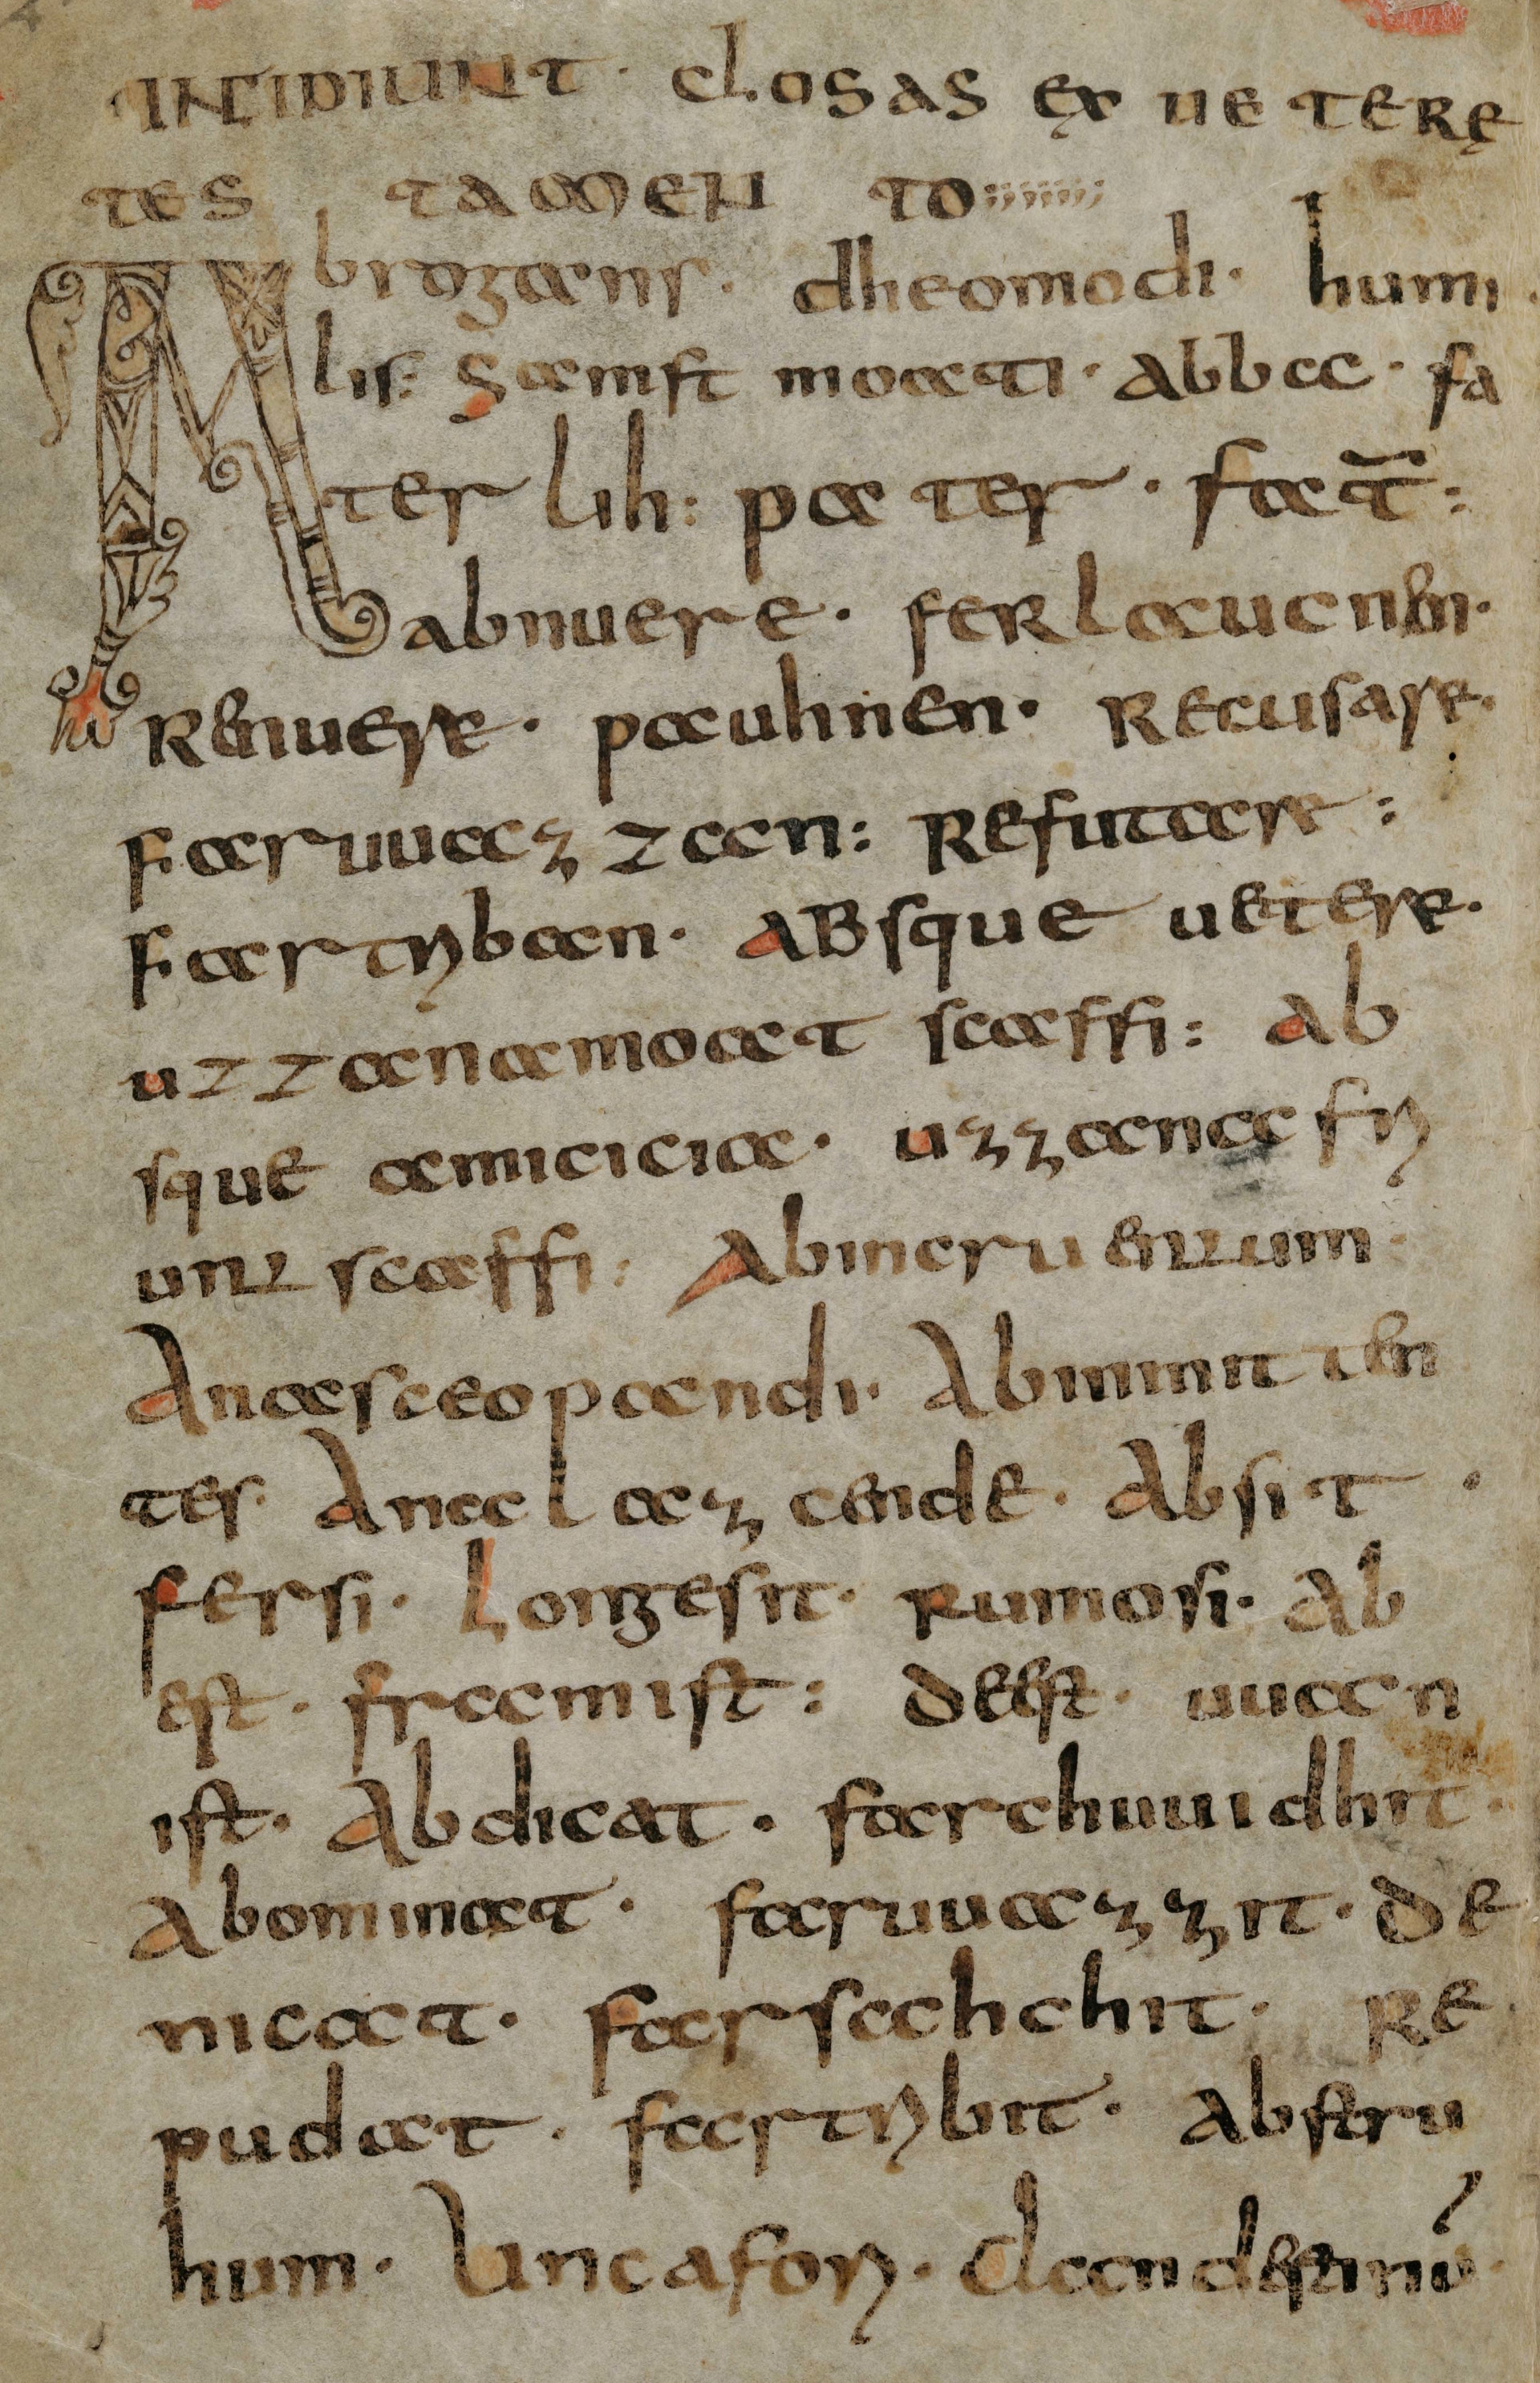 INCIPIUNT · CLOSAS EX UETERE
TES TAMEN TO;;;;;;
Abrogans · dheomodi · humi
lis: samftmoati · abbaa · fa
ter lih: pater · fat̄:
abnuere · ferlaucnen ·
renuere · pauhnen · recusare ·
faruuazzan: refutare:
fartriban · absque uetere ·
uzzana moat scaffi: ab
sque amiciciae · uzzana fri
untscaffi: abincruentum ·
anasceopandi · abinnitten
ter · analazcende · absit ·
fersi · longe sit · rumo si · ab
est · fram ist: deest · uuan
ist · abdicat · farchuuidhit ·
abominat · faruuazzit · de
nicat · farsahchit · re
pudat · fartribit · abstru
hum · uncafori · clandestinũ ·